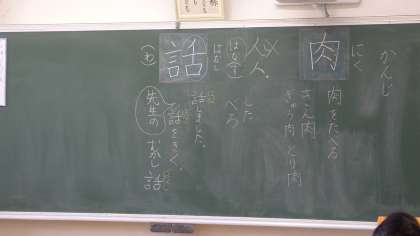 かんじ
にく
肉
肉をたべる
ぎゅう肉 とり肉
人人
はな(す)
した
べろ
はなし
話
話しました。
話をきく。
(わ)
先生の むかし話